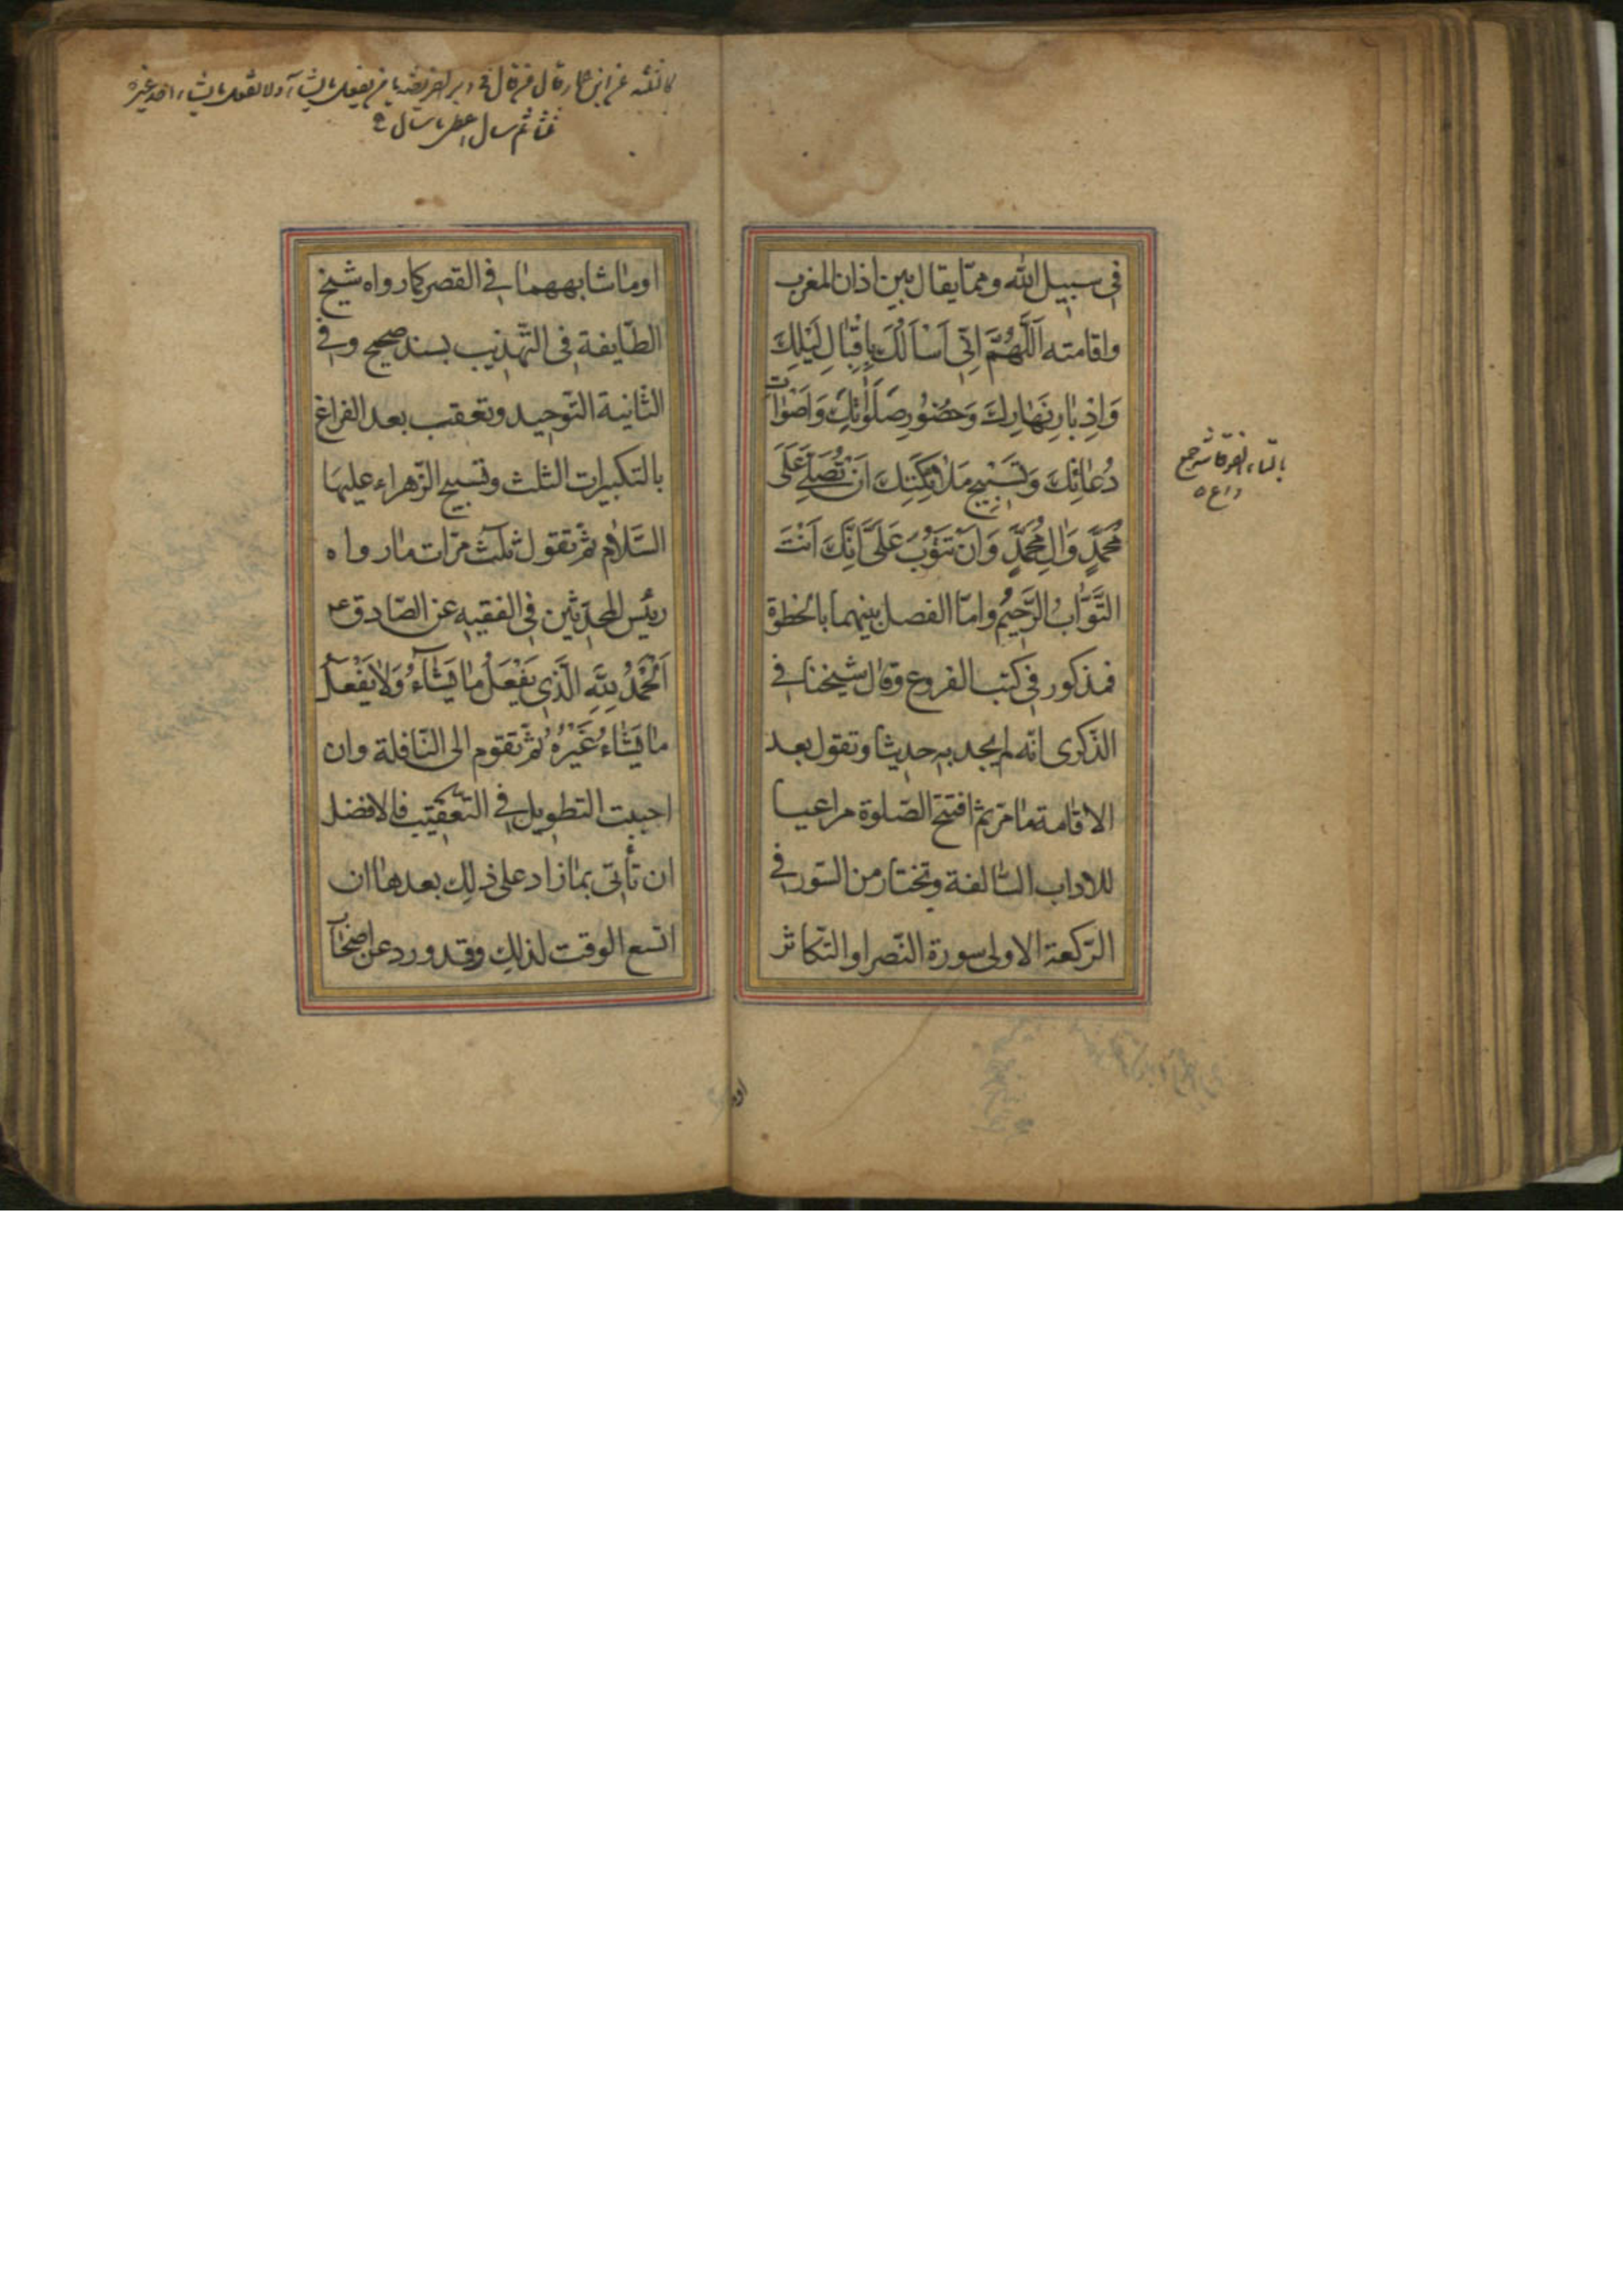 في سبيل الله ومما يقال بين اذان المغرب
واقامته اَللّٰهُمَّ اِنّي اَسْاَلُكَ بِاِقْبَالِ لَيْلِكَ
وَاِدْبَارِ نَهَارِكَ وَحُضُورِ صَلَوٰاتِكَ وَاَصْوَاتِ
دُعَائِكَ وَتَسْبِيحِ مَلٰائِكَتِكَ اَنْ تُصَلِّيَ عَلَى
مُحَمَّدٍ وَاٰلِ مُحَمَّدٍ وَاَنْ تَتُوْبَ عَلَيَّ اِنَّكَ اَنْتَ
التَّوَّابُ الرَّحِيمُ وامّا الفصل بينهما بالخطوة
فمذكور في كتب الفروع وقال شيخنا في
الذكرى انّه لم يجد به حديثا وتقول بعد
الاقامة ما مرّ ثم افتتح الصّلوة مراعيا
للاداب السّالفة وتختار من السّور في
الرّكعة الاولى سورة النّصر او التّكاثر
بالتاء
جمع
كا
قال من قال في دبر الفريضة يا من يفعل ما يشاء ولا يفعل ما يشاء احد غيره
ثلثا ثم سال اعطى ما سال
او ما شابههما في القصر كما رواه شيخ
الطّايفة في التّهذيب بسند صحيح وفي
الثّانية التّوحيد وتعقب بعد الفراغ
بالتكبيرات الثلث وتسبيح الزّهراء عليها
السّلام ثمّ تقول ثلث مرّات ما رواه
رئيس المحدّثين في الفقيه عن الصّادق ع
اَلْحَمْدُ لِلّٰهِ الَّذِي يَفْعَلُ مٰا يَشَآءُ وَلٰا يَفْعَلُ
مٰا يَشَاءُ غَيْرُهُ ثمّ تقوم الى النّافلة وان
احببت التطويل في التّعقيب فالافضل
ان تأتي بما زاد على ذلك بعدها ان
اتسع الوقت لذلك وقد ورد عن اصحاب